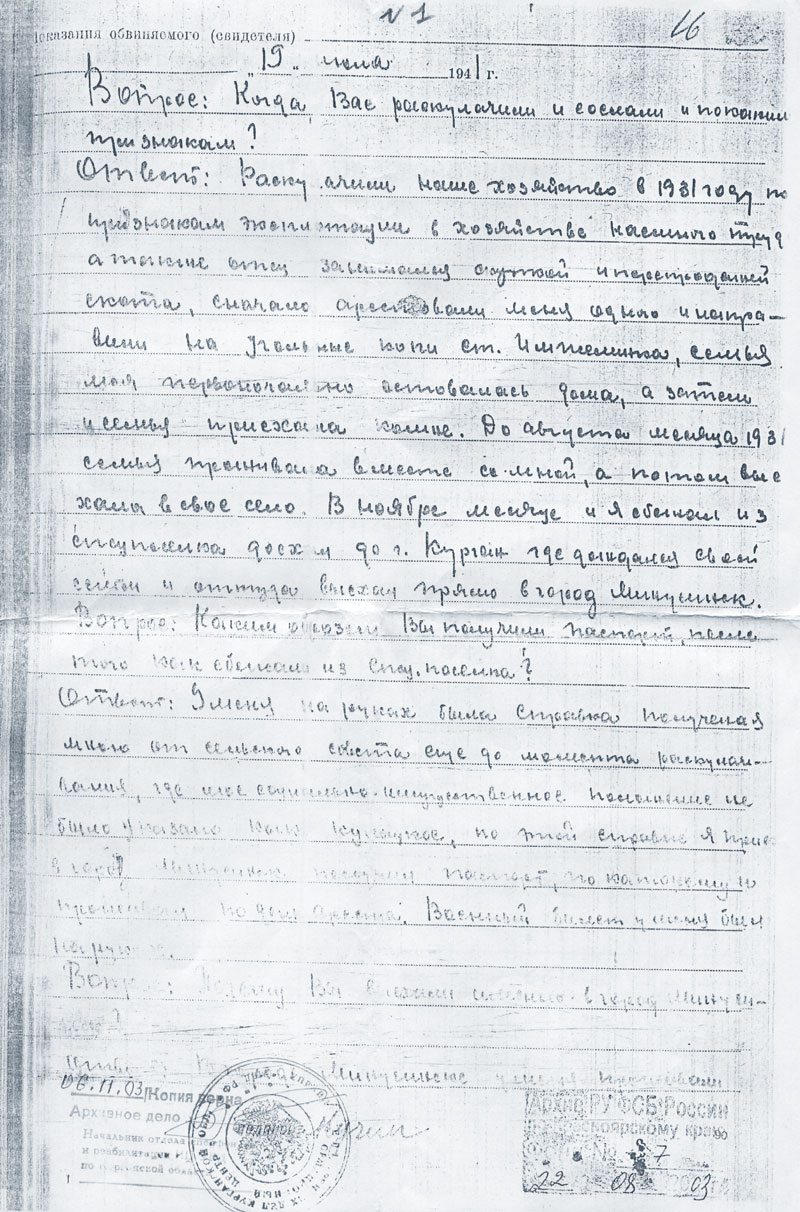 № 1
16
Показания обвиняемого (свидетеля)
„19„ июля 1941 г.
Вопрос: Когда Вас раскулачили и сослали и по каким
признакам?
Ответ: Раскулачили наше хозяйство в 1931 году по
признакам эксплоатации в хозяйстве наемного труд
а также отец занимался скупкой и перепродажей
скота, сначало арестовали меня одного и напра-
вили на угольные копи ст.
семья
моя первоначально оставалась дома, а затем
и семья приехала ко мне. До августа месяца 1931
семья проживала вместе со мной, а потом вые
хала в свое село. В ноябре месяце и я сбежал из
спецпоселка доехал до г. Курган где дождался своей
семьи и оттуда выехал прямо в город Минусинск.
Вопрос: Каким образом Вы получили паспорт, после
того как сбежали из спец.поселка?
Ответ: У меня на руках была справка полученая
мною от сельского совета еще до момента раскулач-
вания, где мое социально-имущественное положение не
было указано как кулацкое, по этой справке я прие
в город Минусинск получил паспорт, по которому и
проживал по день ареста. Военный билет у меня был
на руках.
Вопрос: Почему Вы выехали именно в город Минусин-
Минусинске у меня проживали
06.11.03 Копия верна
Архивное дело
Начальник отдела
и реабилитации
по Курганской области
Архив РУ ФСБ России
по Красноярскому краю
№ 7
22 08 03